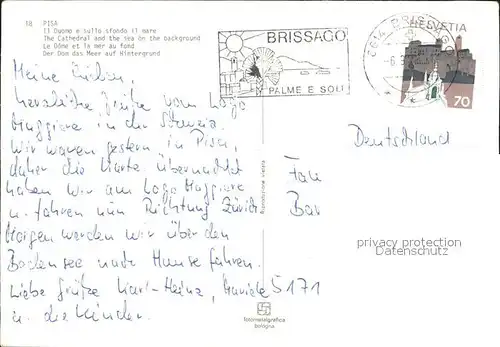 18 PISA
Il Duomo e sullo sfondo il mare
The Cathedral and the sea on the background
Le Dôme et la mer au fond
Der Dom das Meer auf Hintergrund
BRISSAGO
PALME E SOLE
6614 BRISSAGO
HELVETIA
70
Meine Lieben,
herzliche Grüße vom Lago
Maggiore in der Schweiz.
Wir waren gestern in Pisa,
daher die Karte. Übernachtet
haben wir am Lago Maggiore
u. fahren nun Richtung Zürich.
Morgen werden wir über den
Bodensee nach Hause fahren.
Liebe Grüße Karl-Heinz,
u. die Kinder.
Deutschland
Bar
5171
privacy protection
Datenschutz
fotometalgrafica
bologna